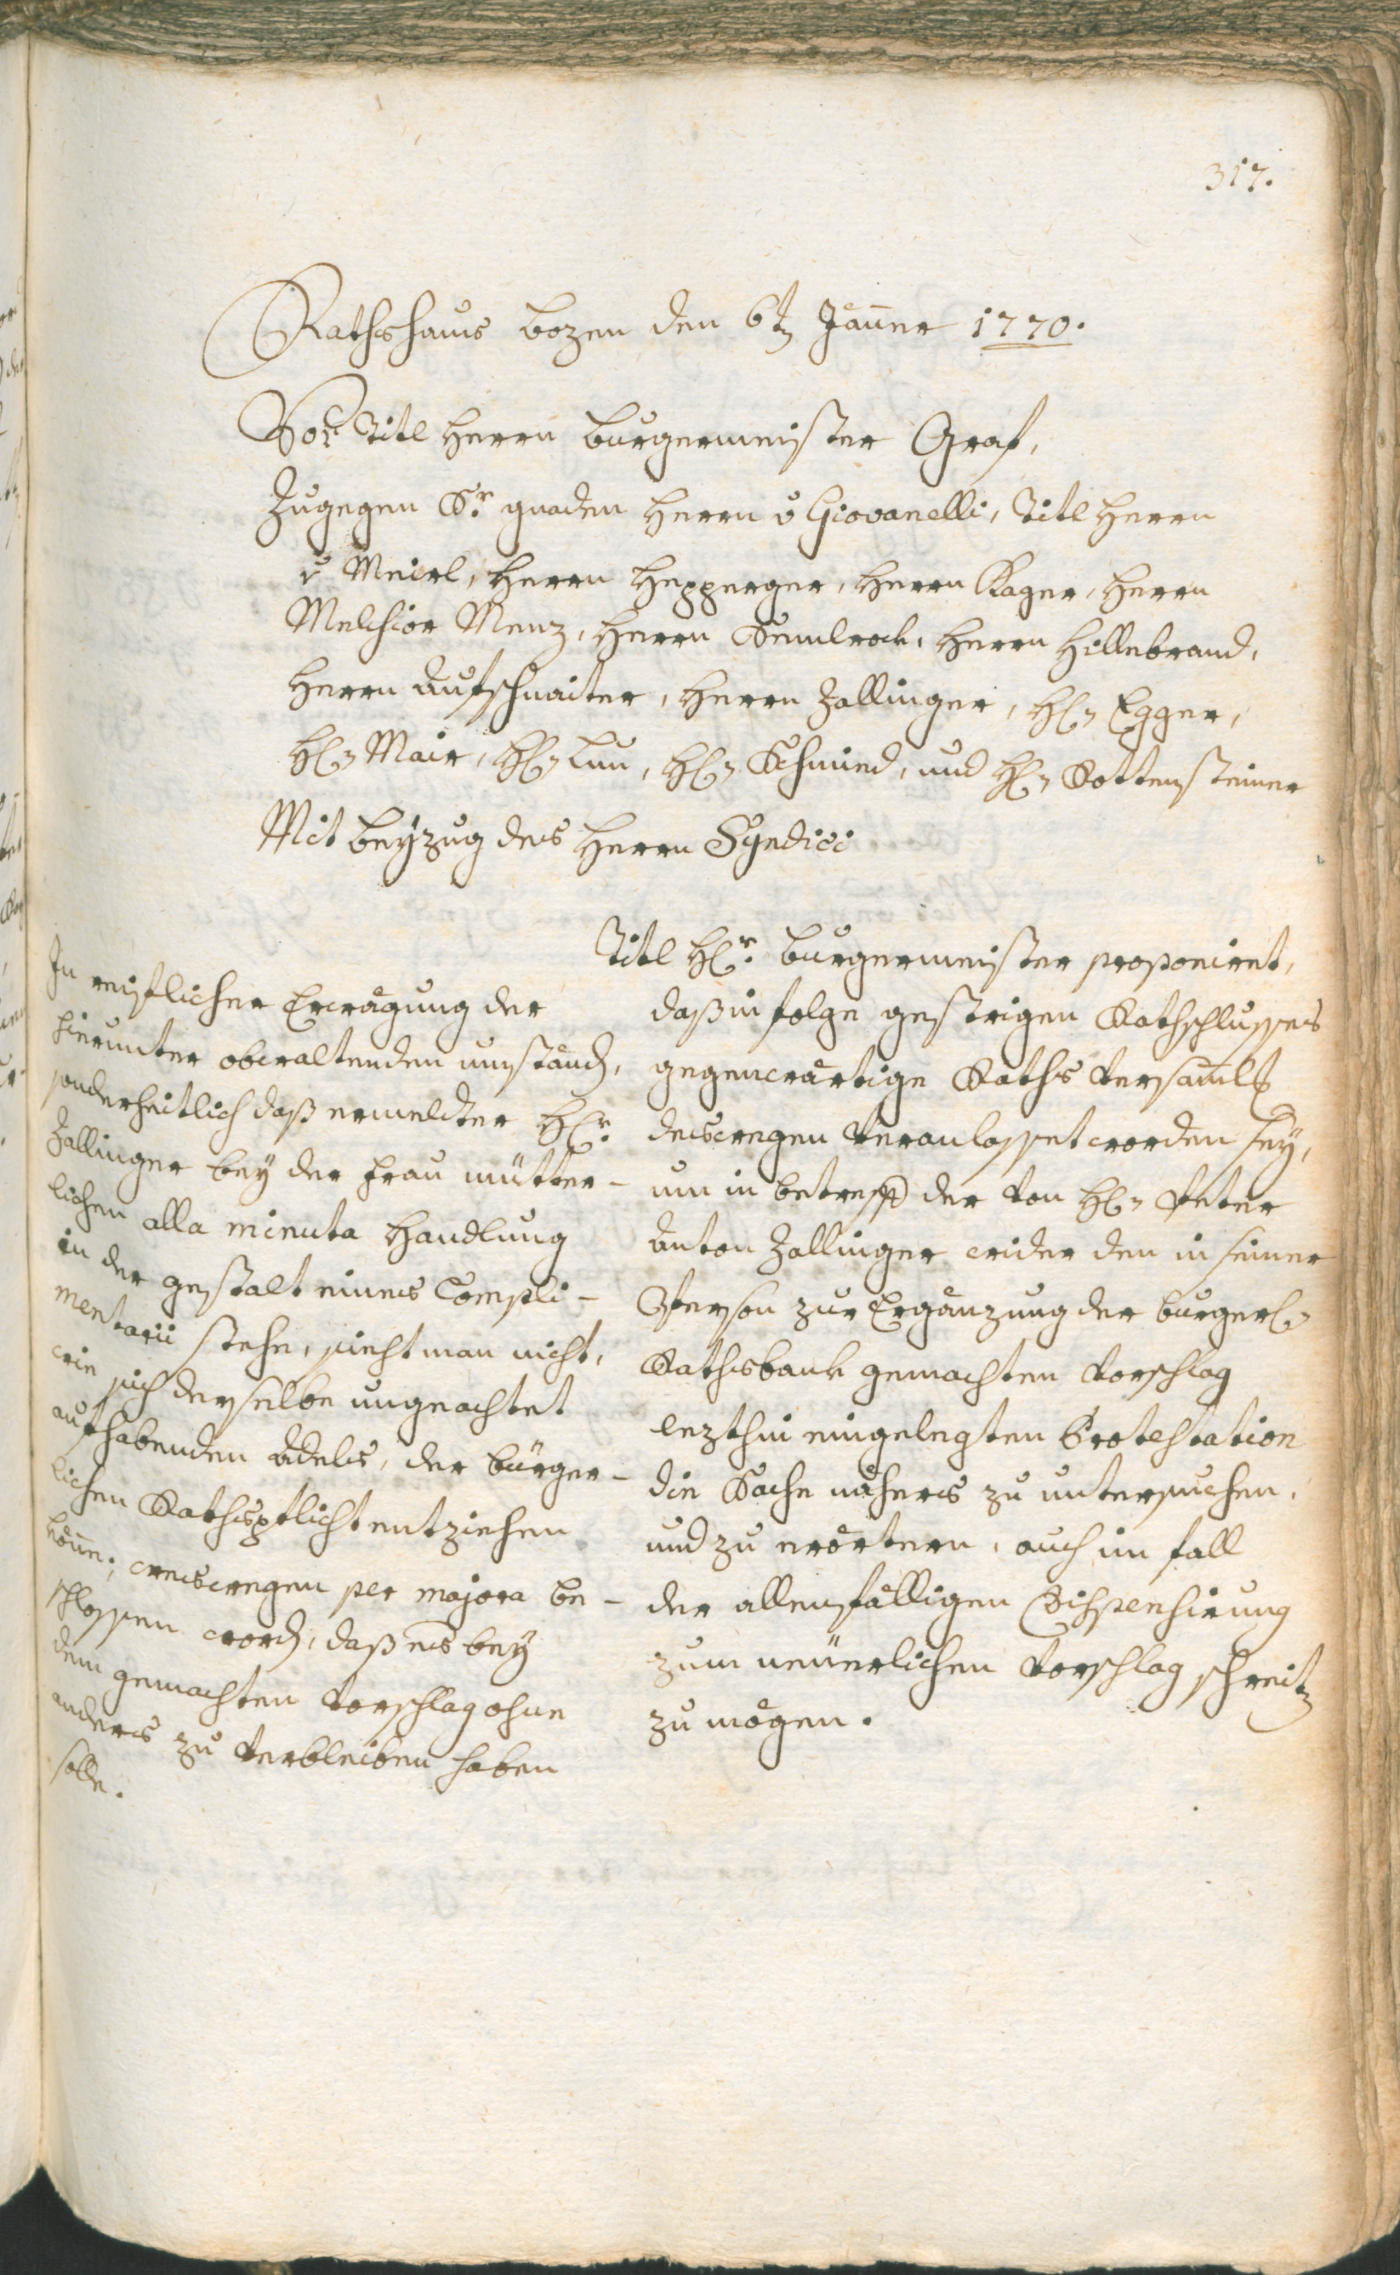 317.
Rathshaus Bozen den 6t. Jäner 1770.
Vor Titl Herrn Burgermeister Graf,
Zugegen Sr. gnaden Herrn v Giovanelli, Titl Herrn
v Meirl, Herrn Hepperger, Herrn Kager, Herrn
Melchior Menz, Herrn Semlrock, Herrn Hillebrand,
Herrn Aufschnaiter, Herrn Zallinger, H: Egger,
H: Mair, H: Lun, H: Schmied, und H: Rottensteiner
Mit beyzug des Herrn Syndici
Titl Hr. Burgermeister proponiret,
daß in folge gestrigen Rathschlusses
gegenwärtige Raths versamlg
deswegen veranlasset worden sey,
um in betreff der von H: Peter
Anton Zallinger wider den in seiner
Person zur Ergänzung der burgerl:
Rathsbank gemachten vorschlag
lezthin eingelegten Protestation
die Sache nähers zu untersuchen,
und zu erörtern, auch im fall
der allenfälligen Dispensirung
zum neüerlichen vorschlag schreitn
zu mögen.
In reiflicher Erwägung der
hierunter obwaltenden umständ,
sonderheitlich daß ermeldter Hr.
Zallinger bey der Frau mütter-
lichen alla minuta Handlung
in der gestalt eines Compli-
mentarii stehe, sieht man nicht,
wie sich derselbe ungeachtet
aufhabenden Adels, der bürger-
lichen Rathspflicht entziehen
könne; weswegen per majora be-
schlossen word, daß es bey
dem gemachten vorschlag ohne
anders zu verbleiben haben
solle.